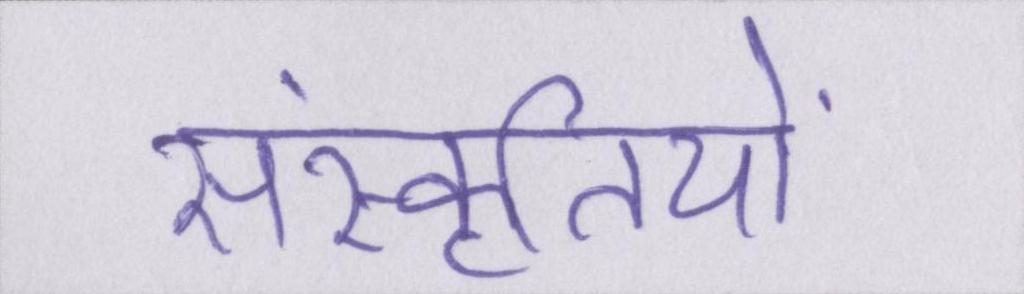 संस्कृतियों